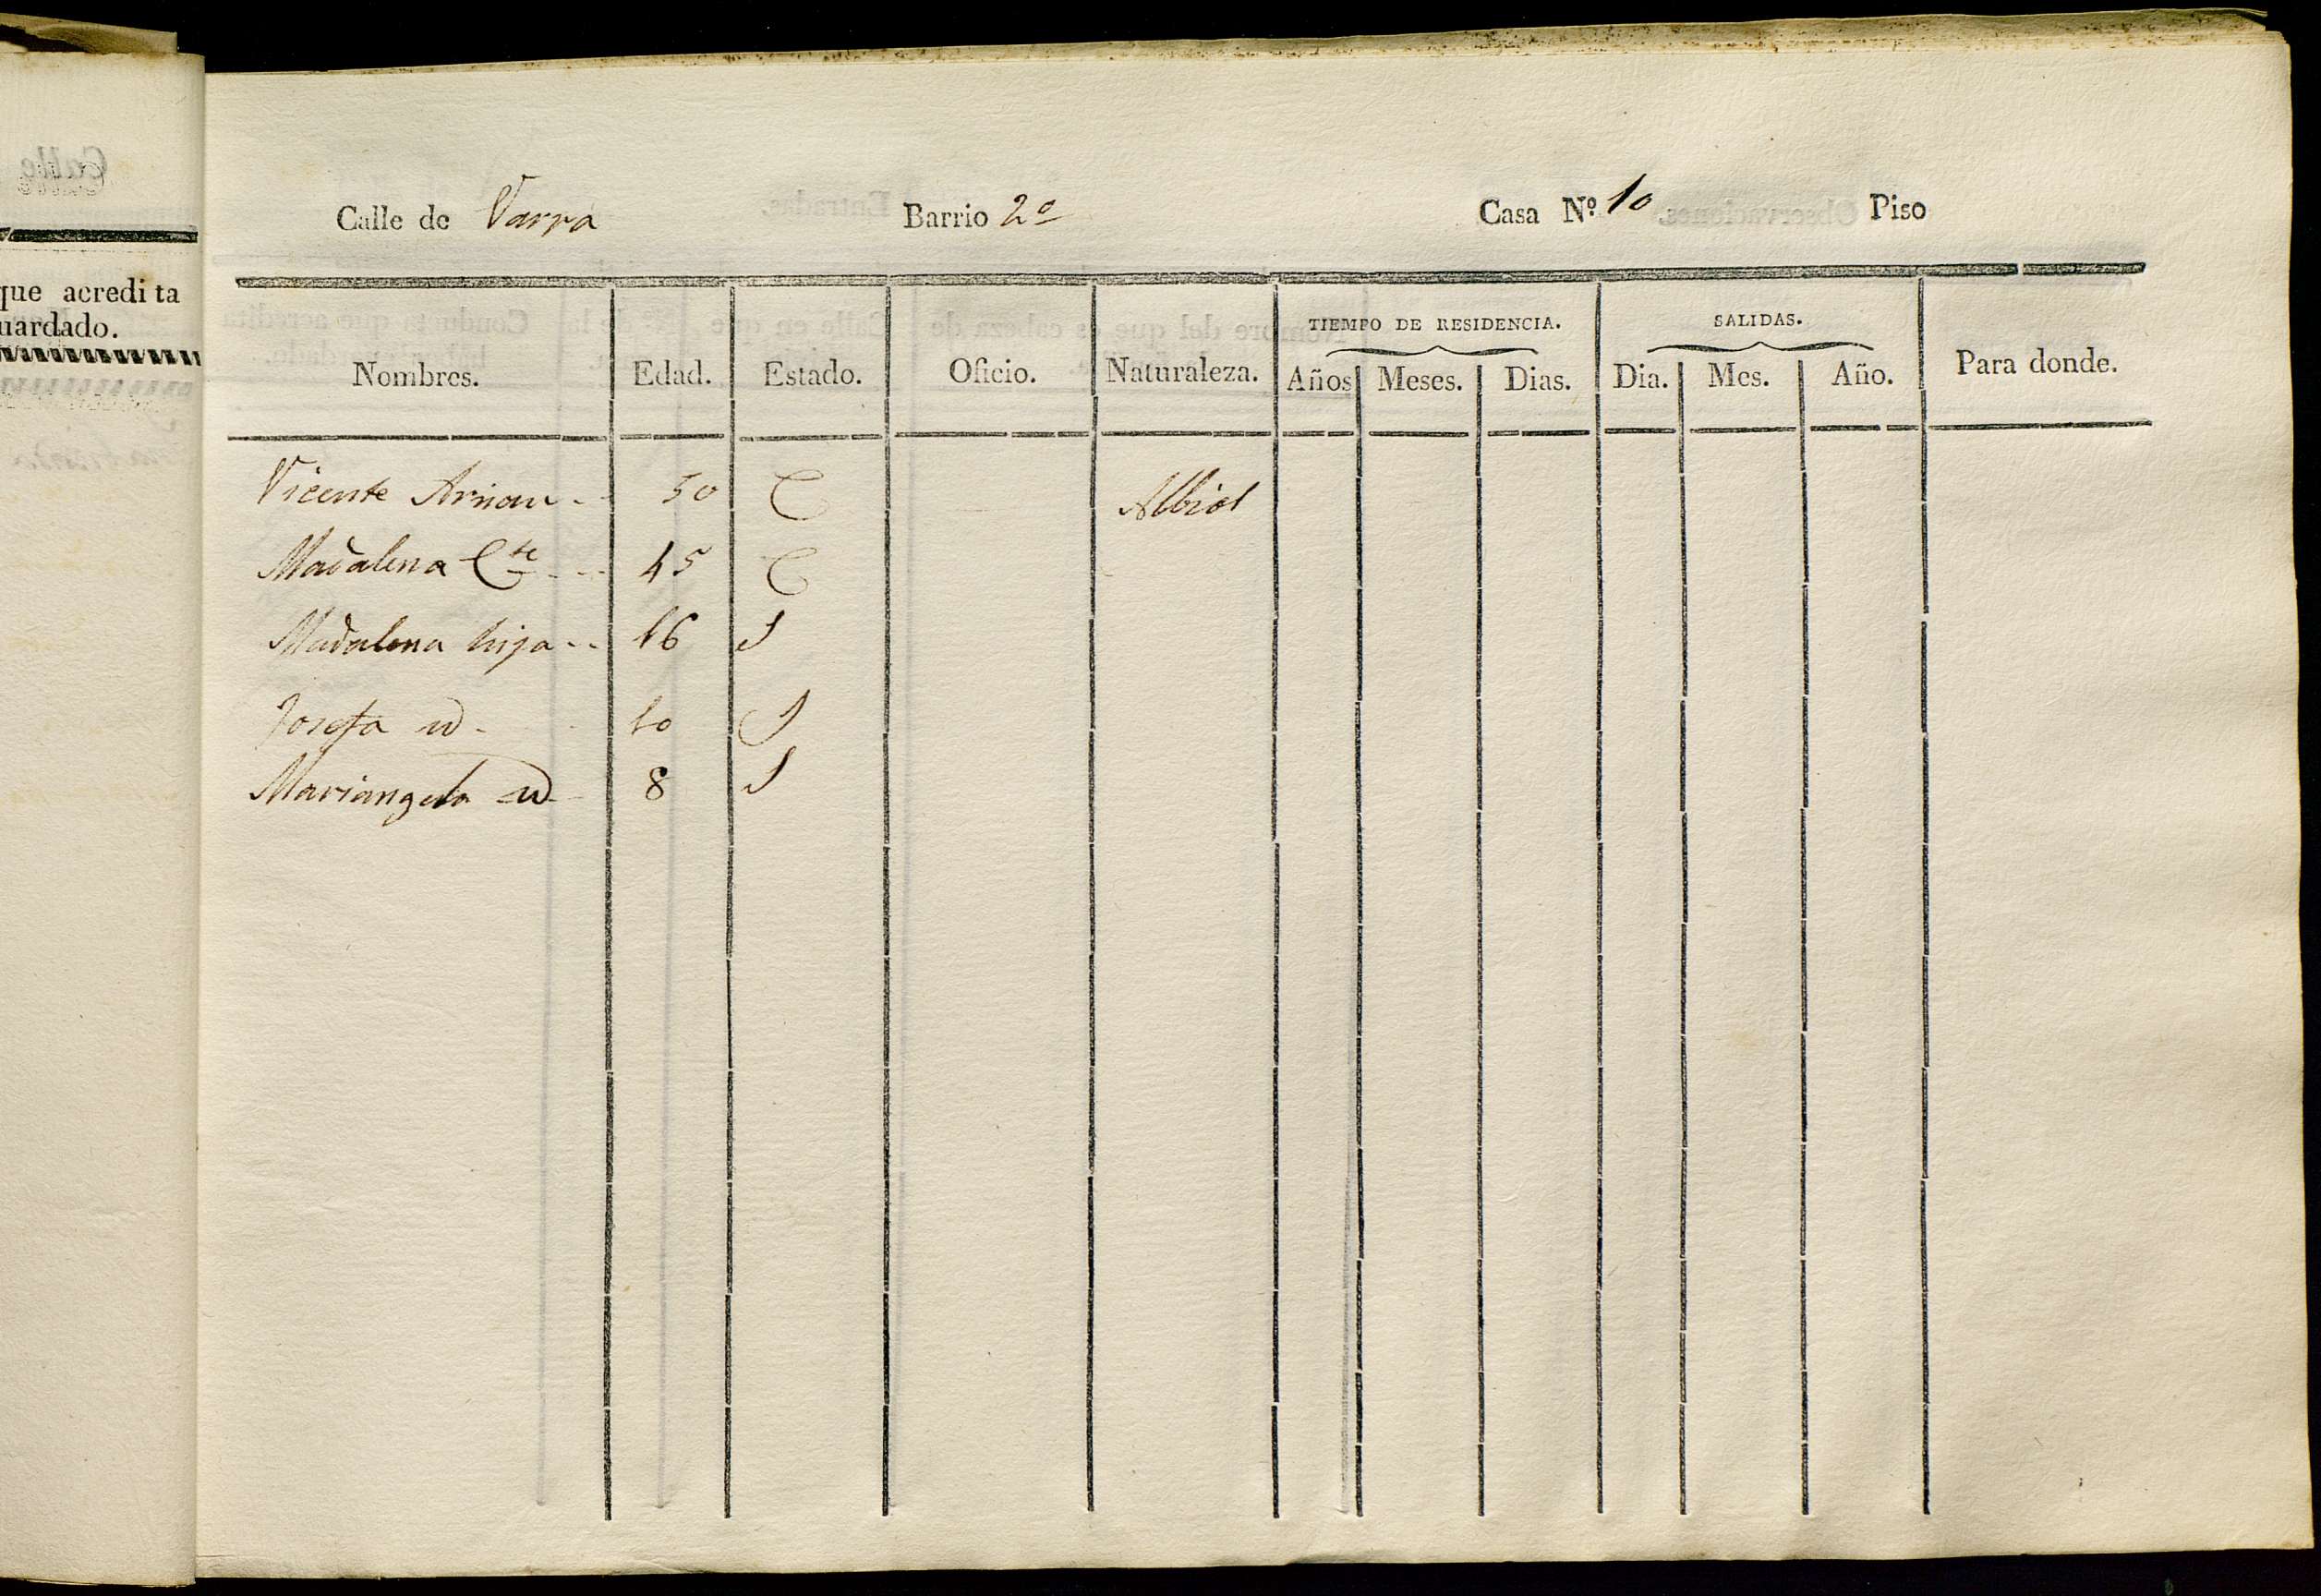 que acredita
uardado.
Calle de Varra Barrio 2º Casa Nº 10 Piso
TIEMPO DE RESIDENCIA. SALIDAS.
Nombres. Edad. Estado. Oficio. Naturaleza. Años Meses. Dias. Dia. Mes. Año. Para donde.
Vicente Arnau 50 C Albiol
Madalena Cte 45 C
Madalena hija 16 S
Josefa id 10 S
Mariangela id 8 S